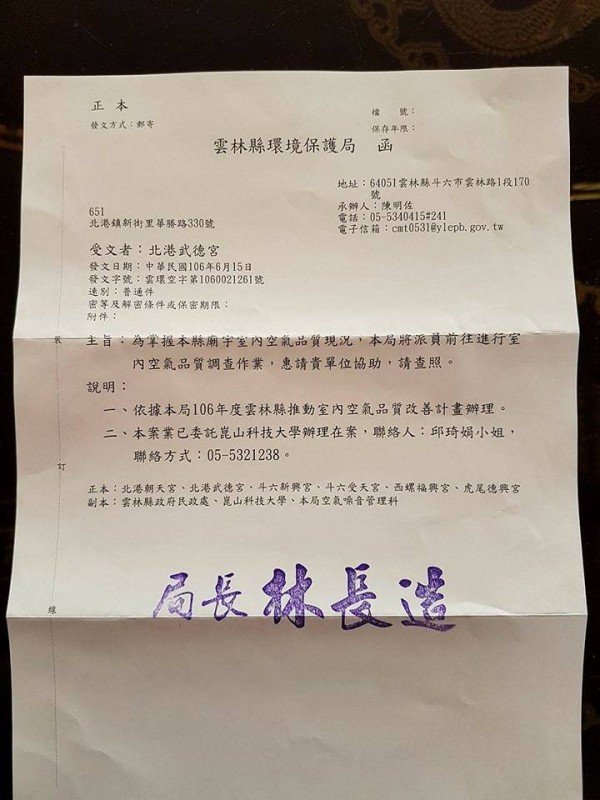 正本
發文方式：郵寄
檔　　號：
保存年限：
雲林縣環境保護局　函
地址：64051雲林縣斗六市雲林路1段170
號
承辦人：陳明佐
電話：05-5340415#241
電子信箱：cmt0531@ylepb.gov.tw
651
北港鎮新街里華勝路330號
受文者：北港武德宮
發文日期：中華民國106年6月15日
發文字號：雲環空字第1060021261號
速別：普通件
密等及解密條件或保密期限：
附件：
主旨：為掌握本縣廟宇室內空氣品質現況，本局將派員前往進行室
內空氣品質調查作業，惠請貴單位協助，請查照。
說明：
一、依據本局106年度雲林縣推動室內空氣品質改善計畫辦理。
二、本案業已委託崑山科技大學辦理在案，聯絡人：邱琦娟小姐，
聯絡方式：05-5321238。
正本：北港朝天宮、北港武德宮、斗六新興宮、斗六受天宮、西螺福興宮、虎尾德興宮
副本：雲林縣政府民政處、崑山科技大學、本局空氣噪音管理科
局長林長造
裝
訂
線